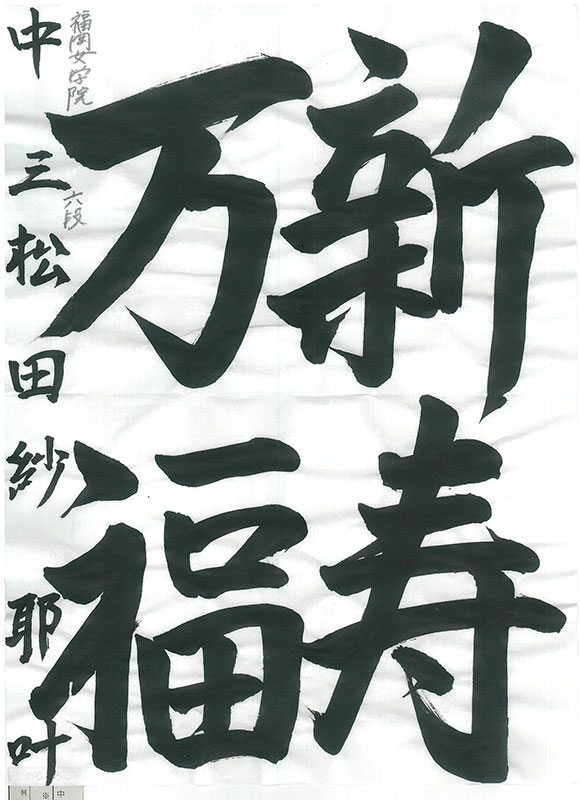 新寿
万福
福岡女学院
六段
中三 松田紗耶叶
※中